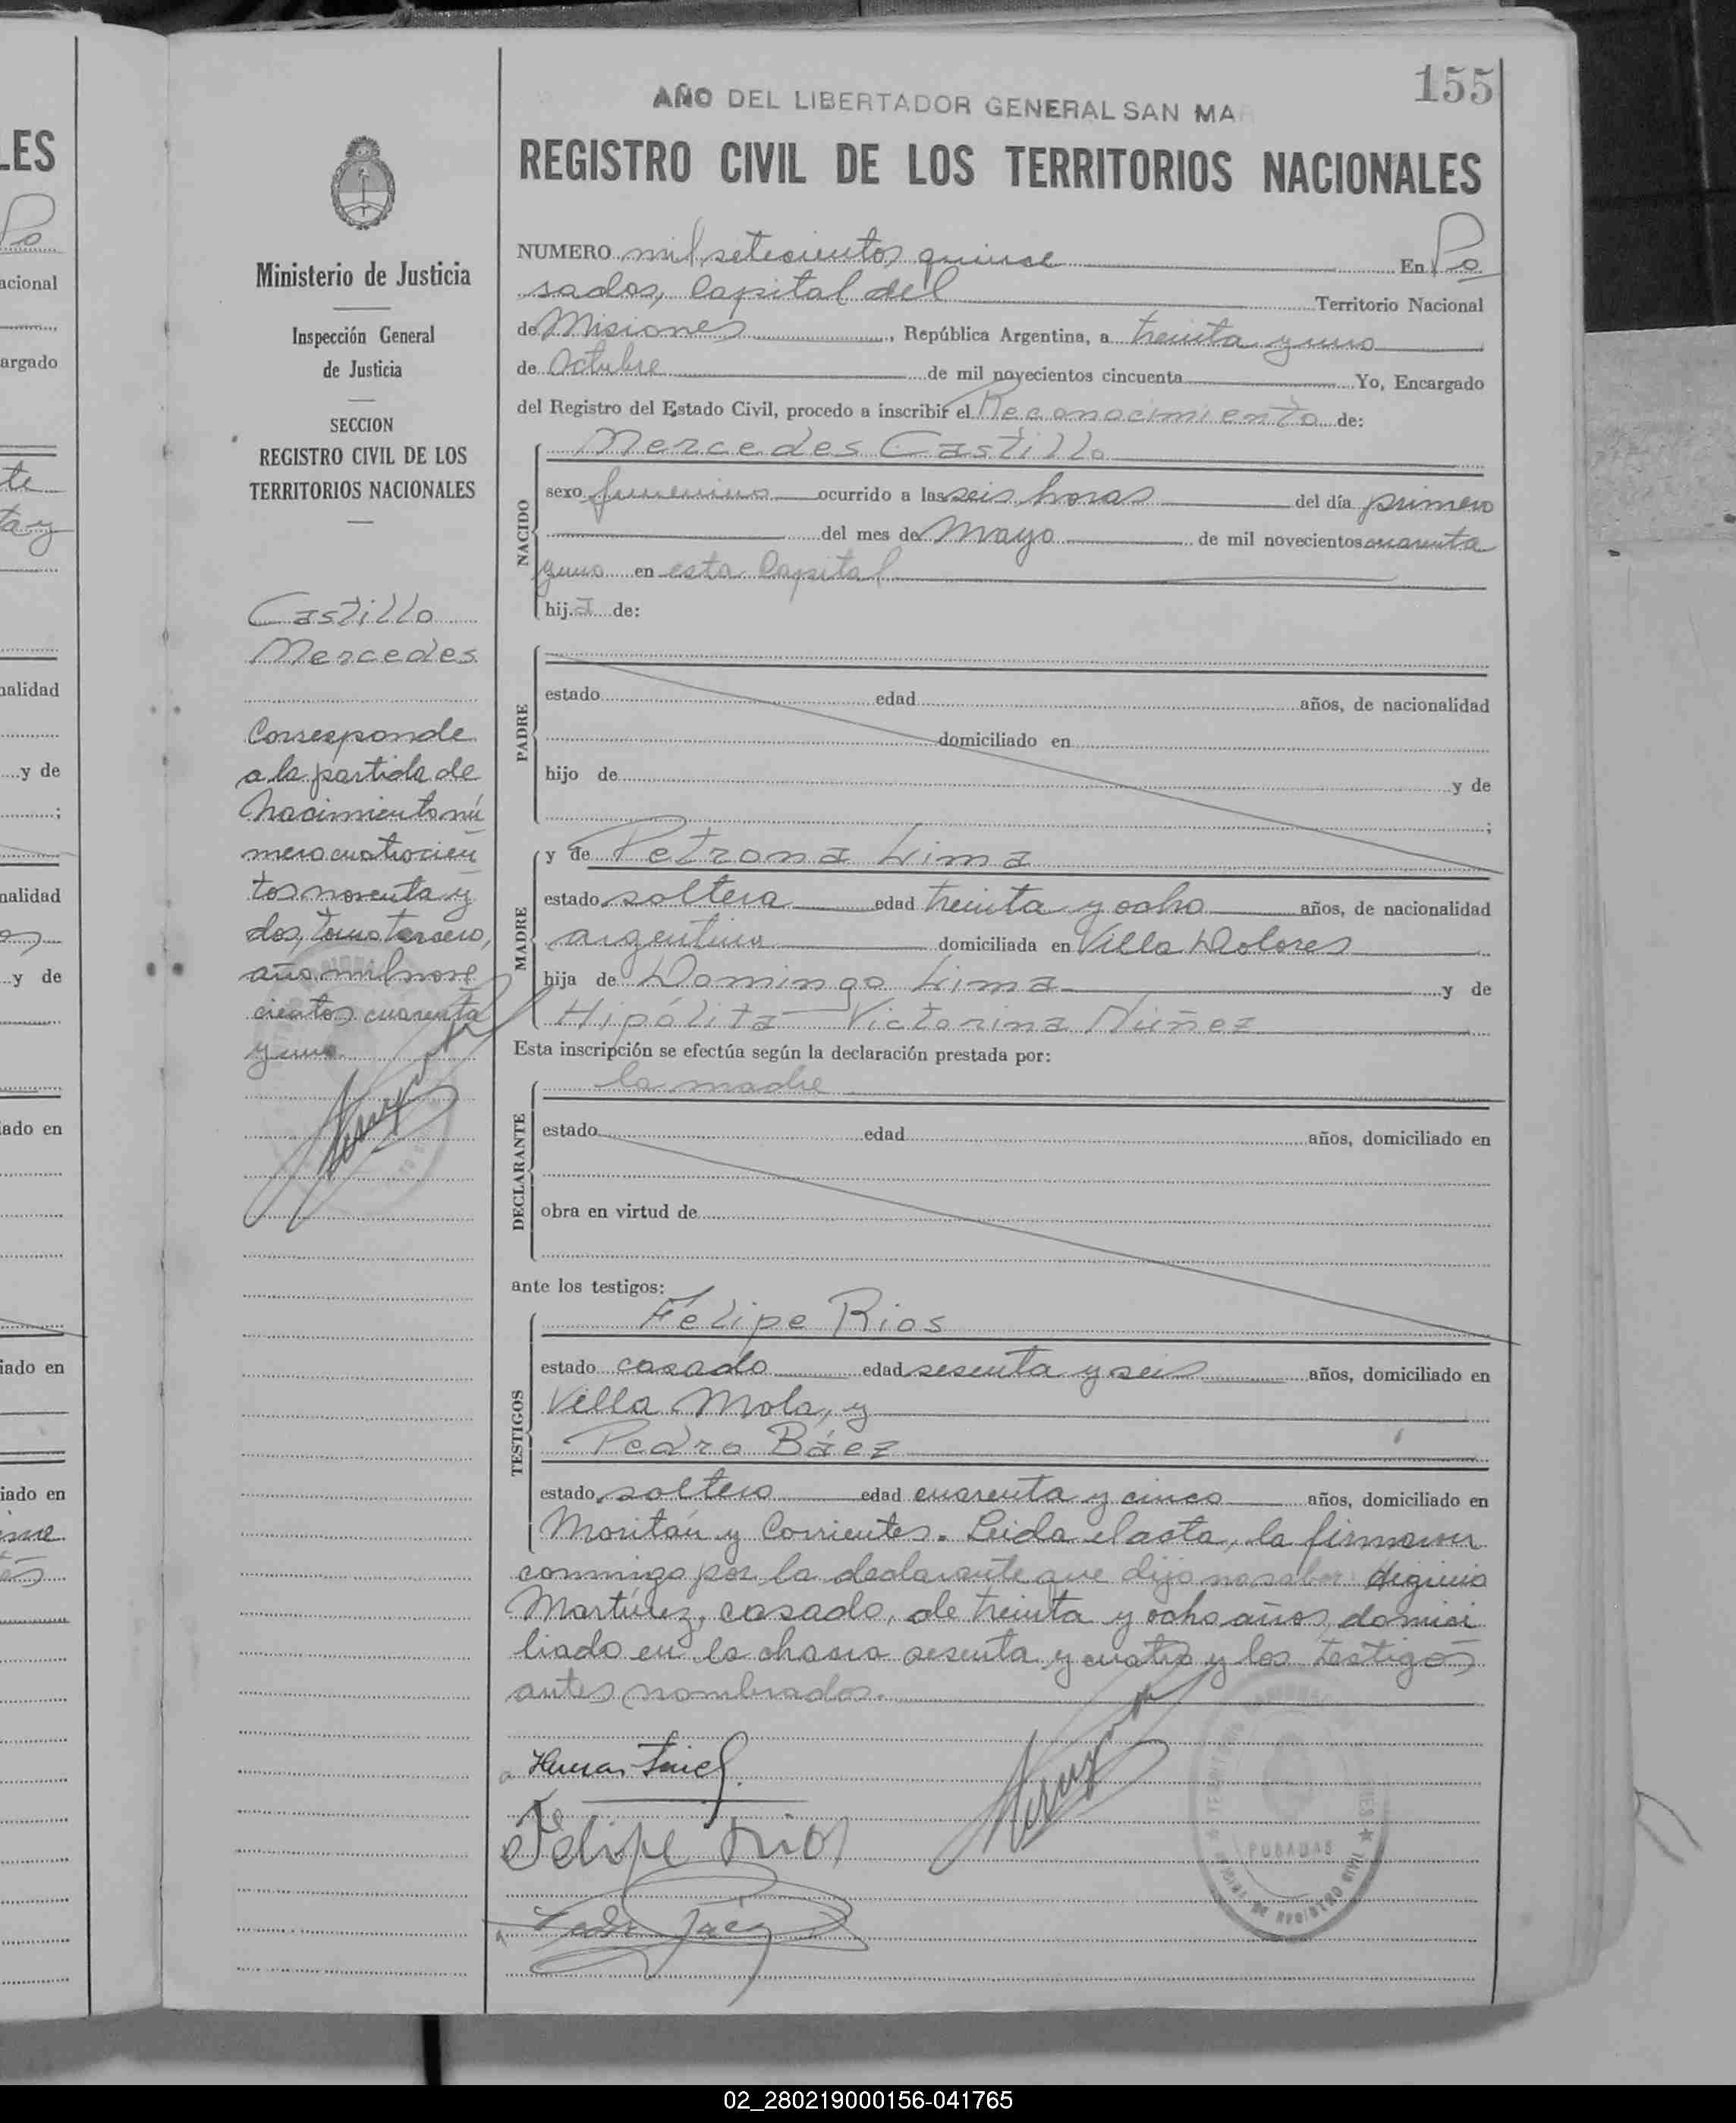 155
AÑO DEL LIBERTADOR GENERAL SAN MAR
REGISTRO CIVIL DE LOS TERRITORIOS NACIONALES
Ministerio de Justicia
Inspección General
de Justicia
SECCION
REGISTRO CIVIL DE LOS
TERRITORIOS NACIONALES
Castillo
Mercedes
Corresponde
a la partida de
nacimiento nú
mero cuatrocien
tos noventa y
dos, tomo tercero,
año mil nove
cientos cuarenta
y uno
NUMERO mil setecientos quince En Po
sadas, Capital del Territorio Nacional
de Misiones, República Argentina, a treinta y uno
de Octubre de mil novecientos cincuenta Yo, Encargado
del Registro del Estado Civil, procedo a inscribir el Reconocimiento de:
NACIDO
Mercedes Castillo
sexo femenino ocurrido a las seis horas del día primero
del mes de Mayo de mil novecientos cuarenta
y uno en esta Capital
hija de:
PADRE
estado edad años, de nacionalidad
domiciliado en
hijo de y de
;
MADRE
y de Petrona Lima
estado soltera edad treinta y ocho años, de nacionalidad
argentina domiciliada en Villa Dolores
hija de Domingo Lima y de
Hipólita Victorina Núñez
Esta inscripción se efectúa según la declaración prestada por:
DECLARANTE
la madre
estado edad años, domiciliado en
obra en virtud de
ante los testigos:
TESTIGOS
Felipe Rios
estado casado edad sesenta y seis años, domiciliado en
Villa Mola, y
Pedro Báez
estado soltero edad cuarenta y cinco años, domiciliado en
Moritán y Corrientes. Leida el acta, la firmaron
conmigo por la declarante que dijo no saber Higinio
Martínez, casado, de treinta y ocho años, domici
liado en la chacra sesenta y cuatro y los testigos
antes nombrados.
Felipe Rios
Pedro Báez
POSADAS
02_280219000156-041765